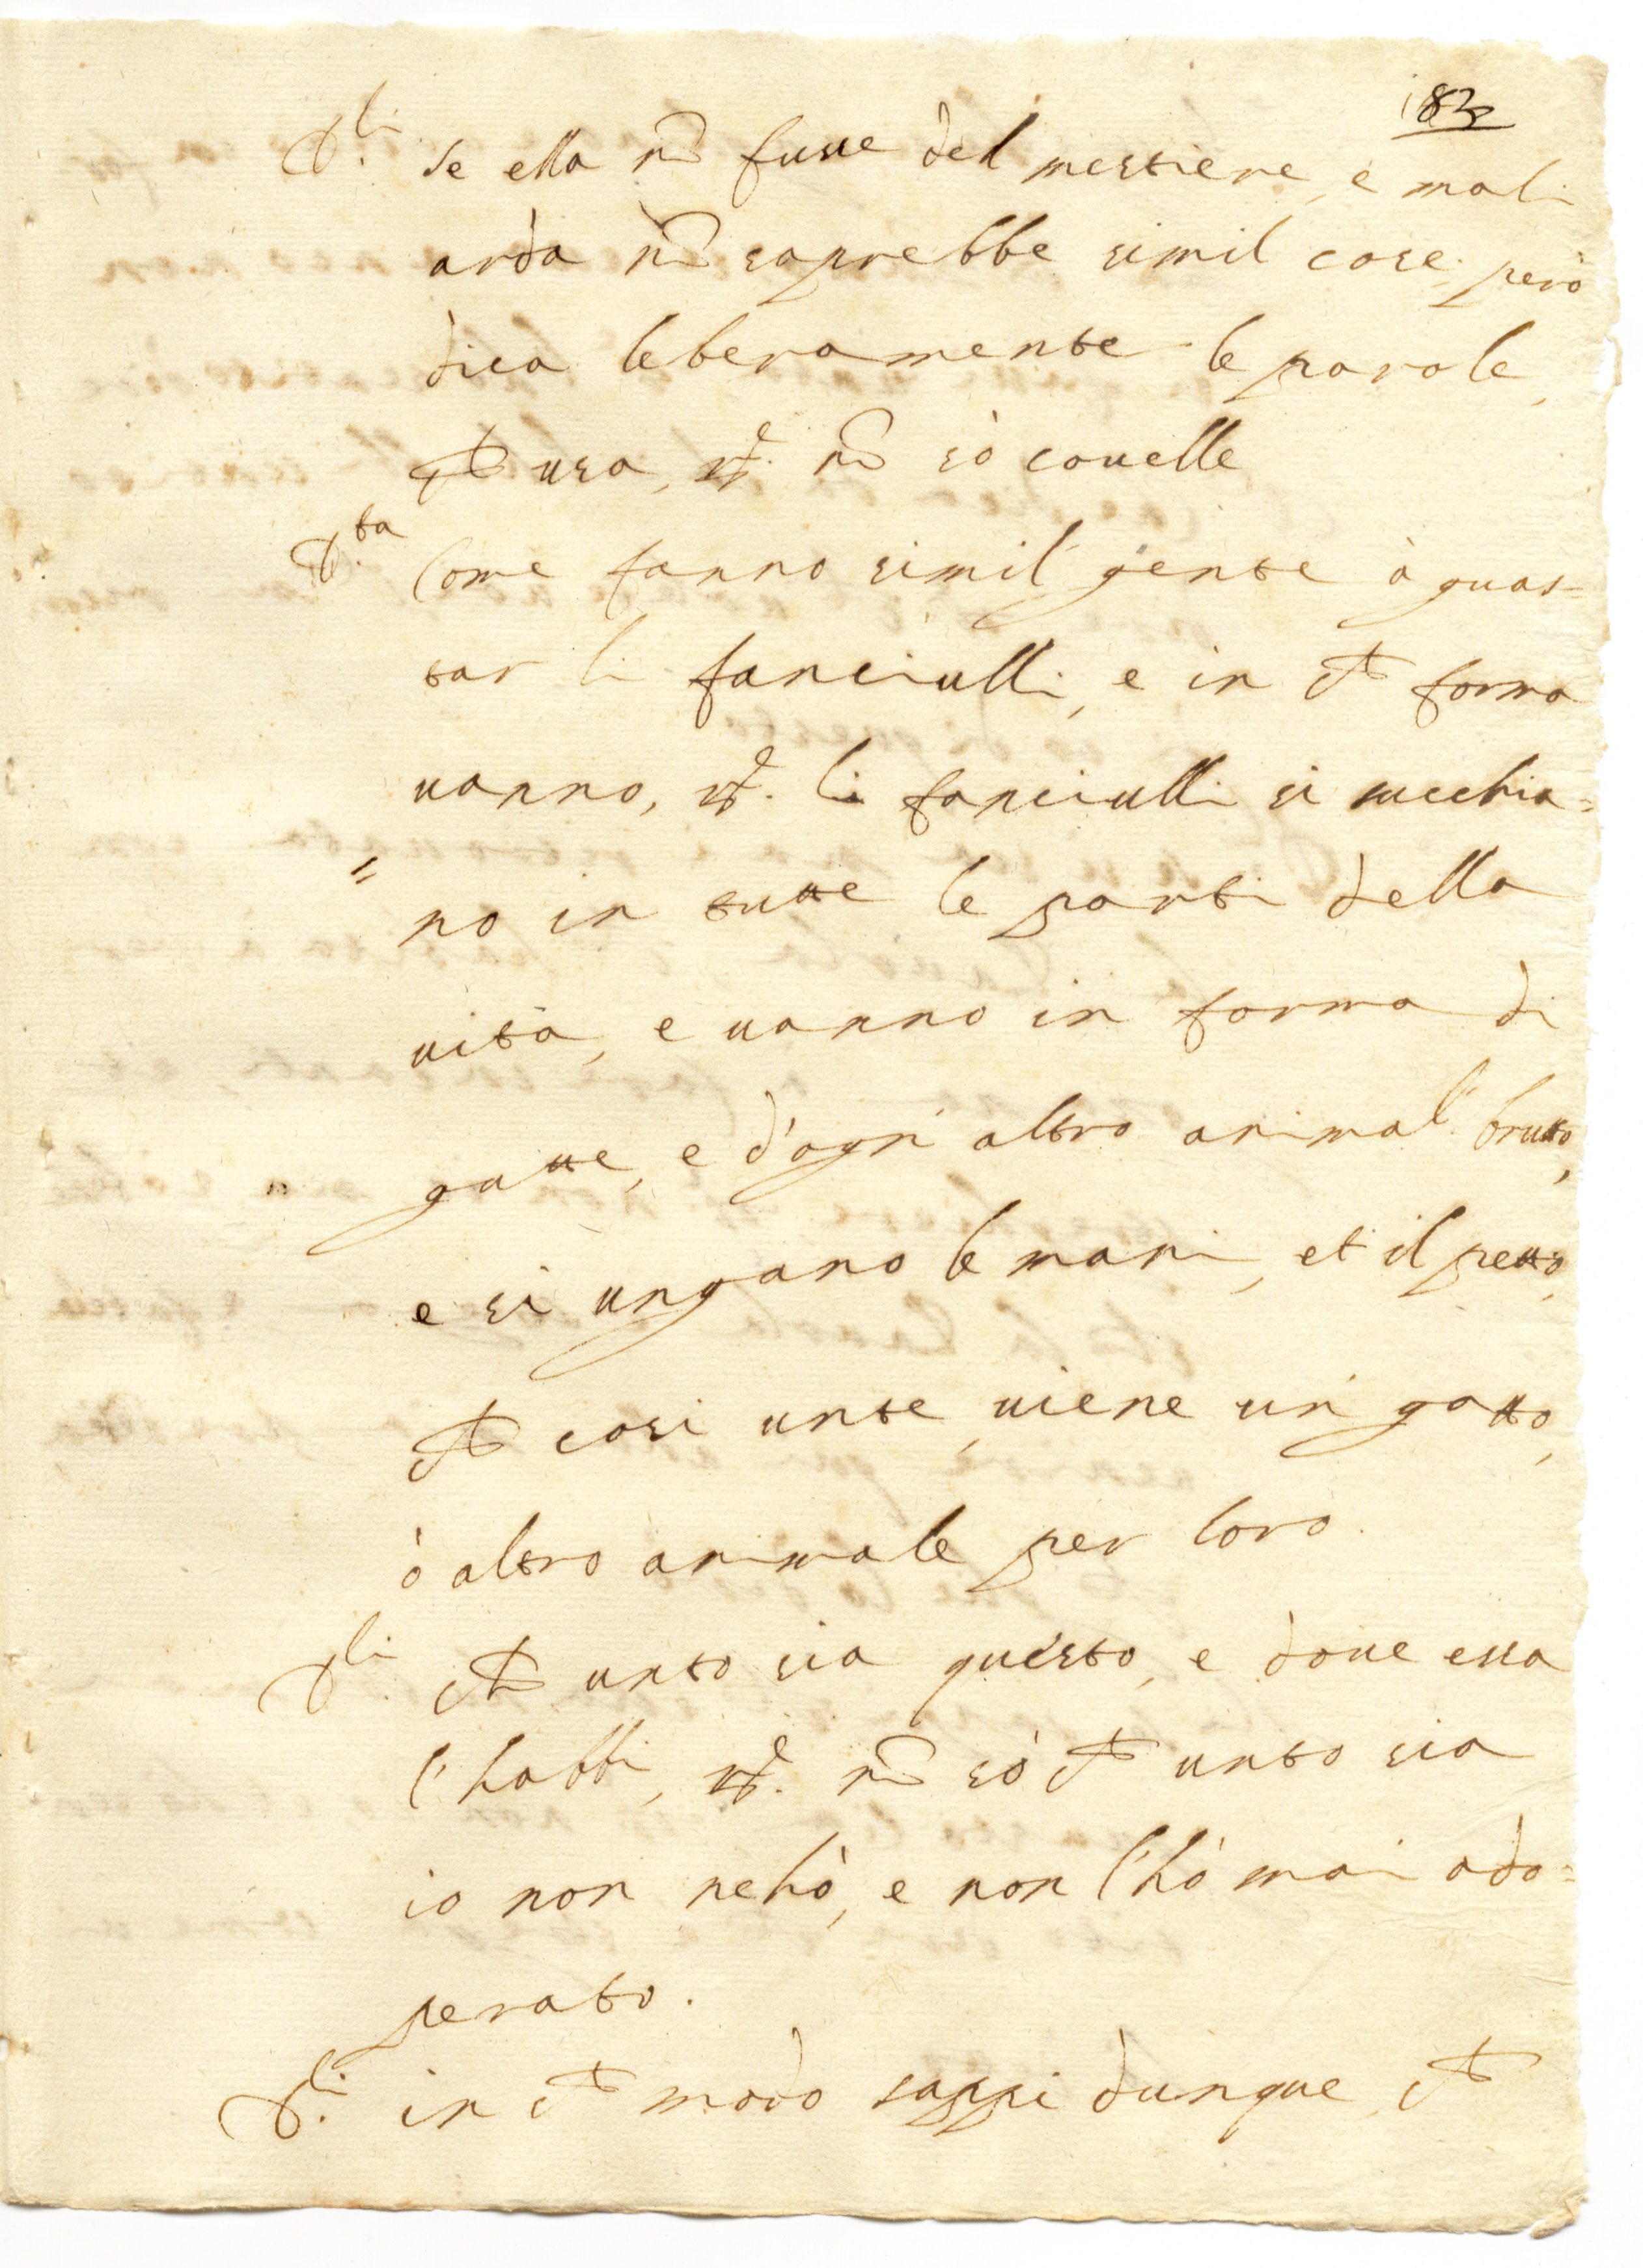 182
D.li se ella nō fusse del mestiere, e mali
arda nō saprebbe simil cose, però
dica leberamente le parole,
ch usa, Re. nō sò couelle
D.ta Come fanno simil gente à guas=
tar li fanciulli, e in ch forma
uanno, Re. li fanciulli si succhia=
=no in tutte le parti della
uita, e uanno in forma di
gatte, e d'ogni altro animal brutto,
e si ungano le mani, et il petto,
ch cosi unte, uiene un gatto,
ò altro animale per loro.
D.li ch unto sia questo, e doue essa
l'habbi, Re. nō sò ch unto sia
io non nehò, e non l'hò mai ado=
perato.
D.li in ch modo sappi dunque, ch